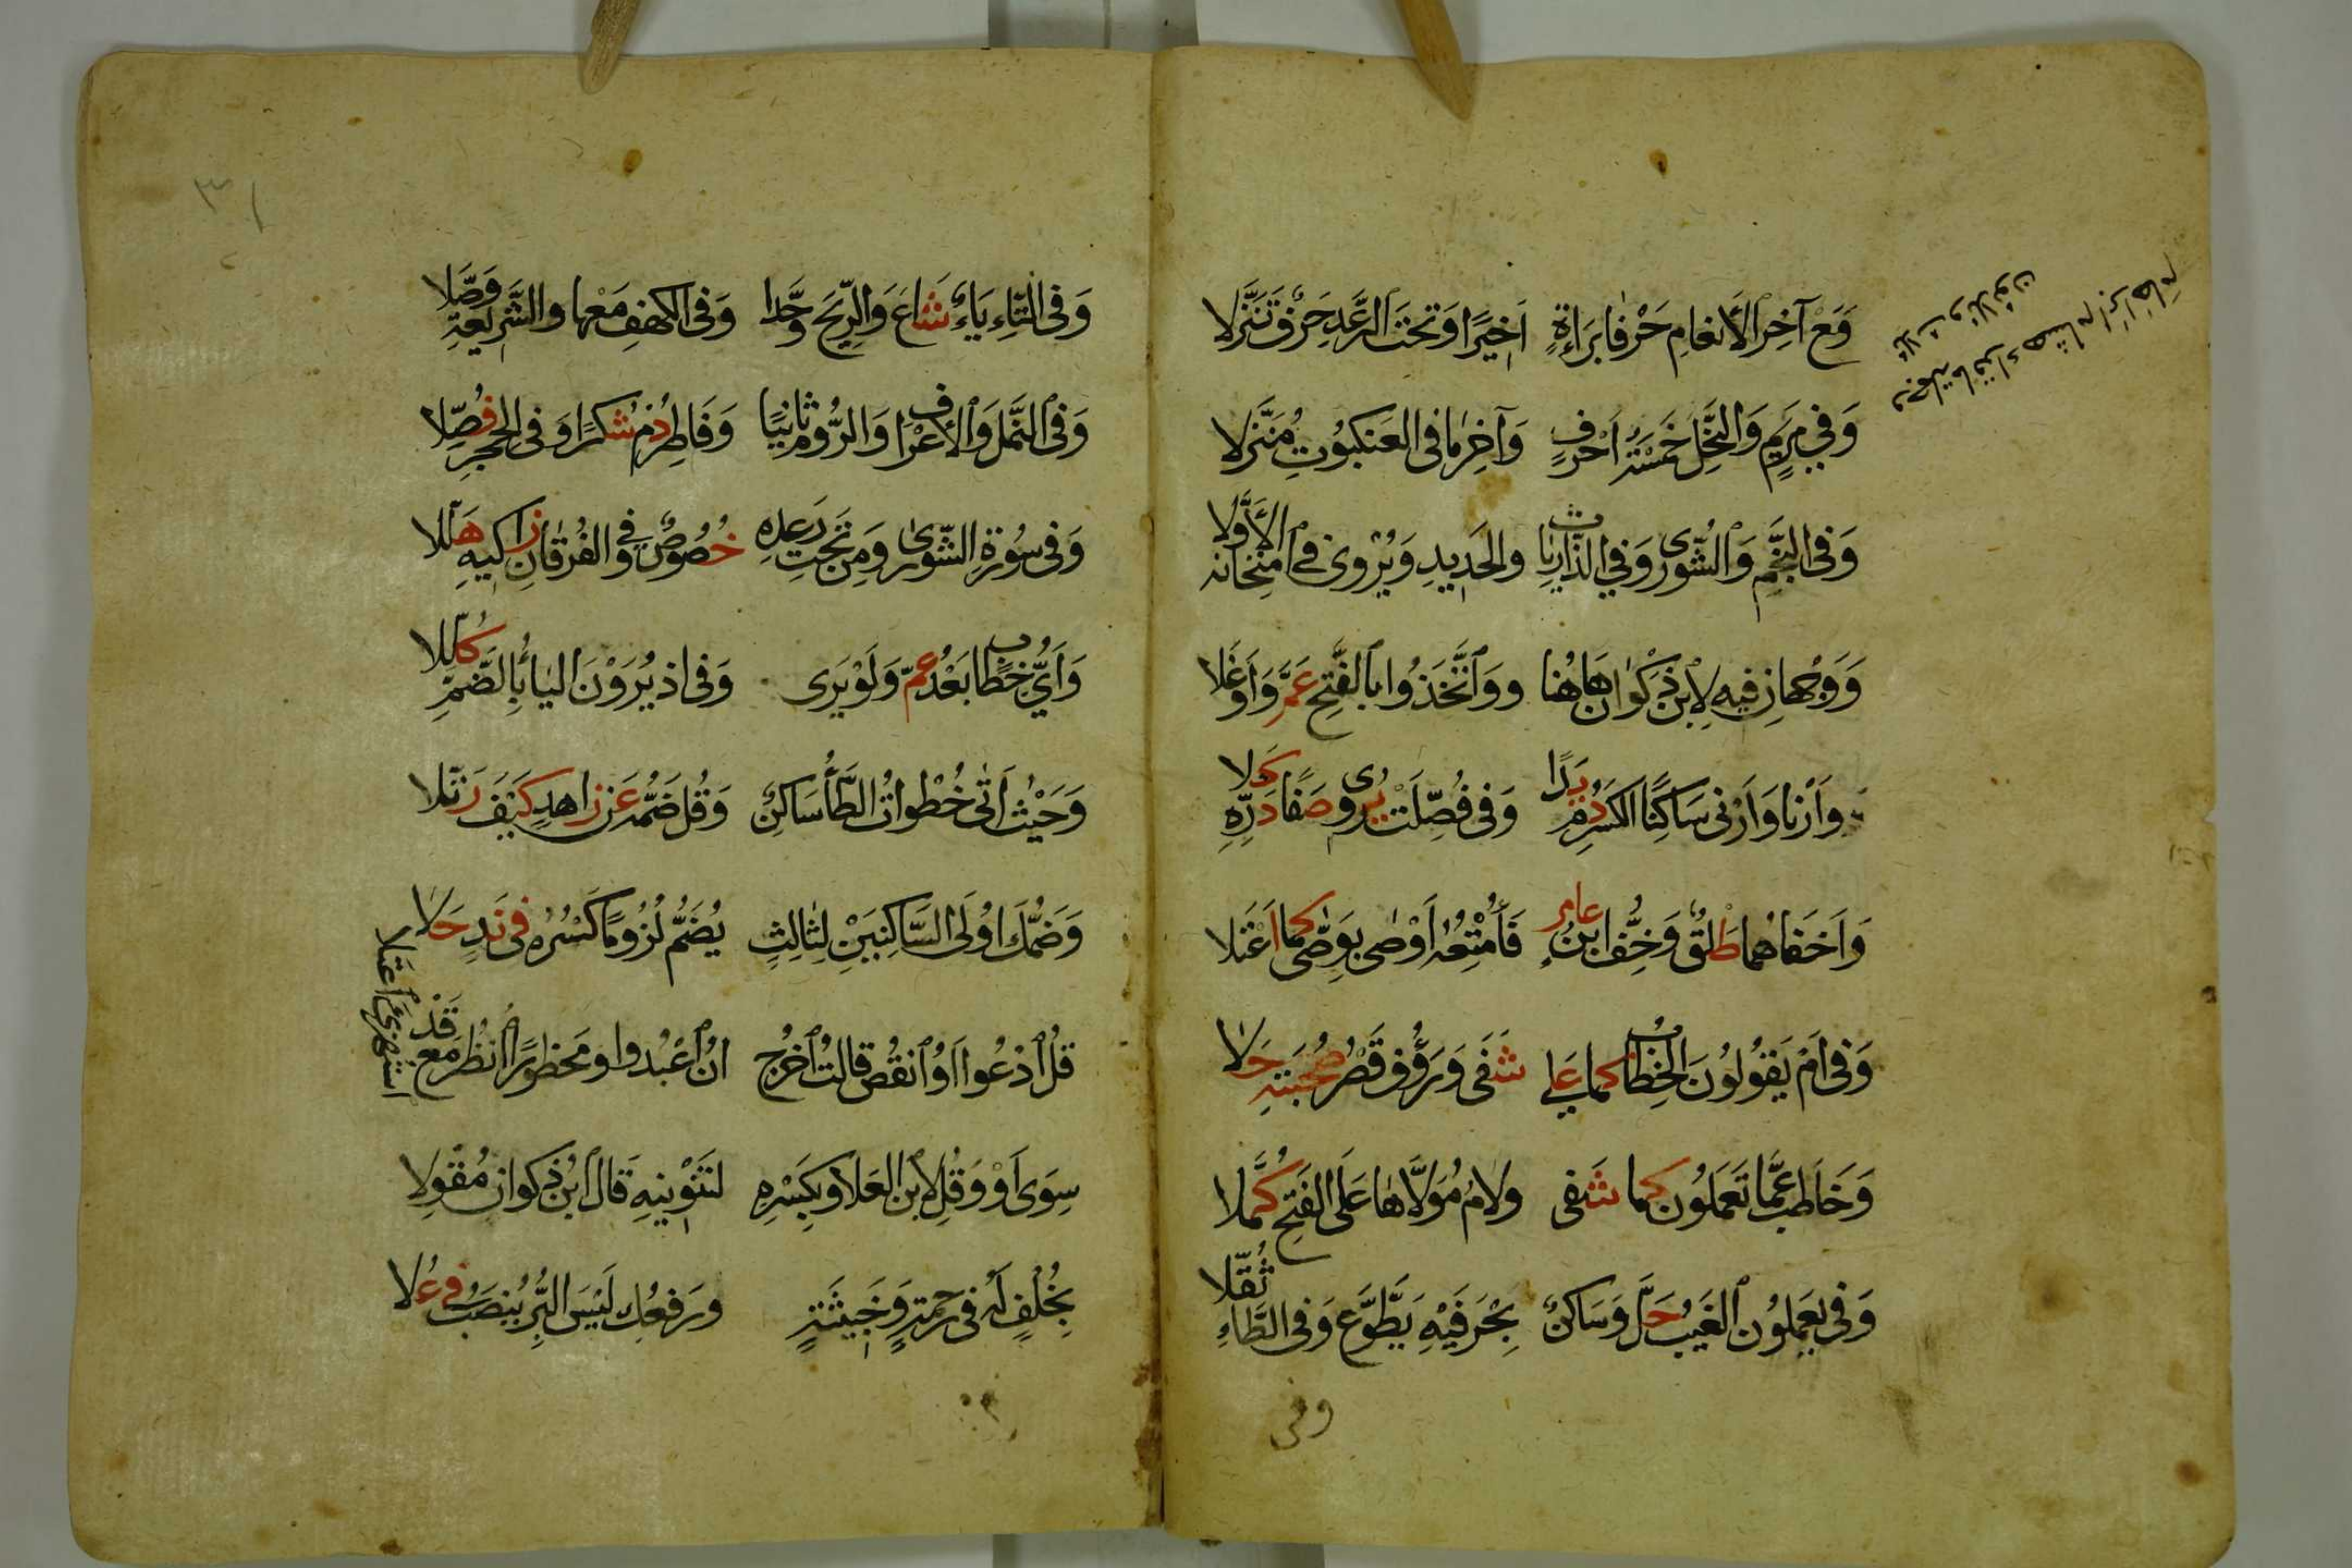 وَمَعَ آخِرِ الأَنعَامِ حَرْفَا بَرَاءَةٍ أَخِيرًا وَتَحتَ الرَّعدِ حَرْفٌ تَنَزَّلا
وَفِي مَريَمٍ وَالنَّحْلِ خَمْسَةُ أَحْرُفٍ وَآخِرُ مَا فِي العَنكَبُوتِ مُنَزَّلا
وَفِي النَّجْمِ وَالشُّورَى وَفِي الذَّارِيَاتِ والحَدِيدِ وَيُرْوِي فِي امتِحَانِهِ الأَوَّلا
وَوَجْهَانِ فِيهِ لِابْنِ ذَكْوَانَ هَاهُنَا ووَاتَّخَذُوا بِالفَتْحِ عَمَّ وَأَوغَلا
وَأَرْنَا وَأَرْنِي سَاكِنَا الكَسْرِ دُمْ يَدًا وَفِي فُصِّلَتْ يُرْوِي صَفَا دَرِّهِ كَلا
وَأَخْفَاهُمَا طَلْقٌ وَخِفُّ ابْنُ عَامِرٍ فَأُمْتِعُهُ أَوْصَى بِوَصَّى كَمَا اعْتَلا
وَفِي أَمْ يَقُولُونَ الخِطَابُ كَمَا عَلَا شَفَى وَرَؤُفٌ قَصْرُ صُحْبَتِهِ حَلا
وَخَاطَبَ عَمَّا تَعمَلُونَ كَمَا شَفَى ولَامُ مُوَلَّاهَا عَلَى الفَتْحِ كُمِّلا
وَفِي يَعمَلُونَ الغَيْبُ حَلَّ وَسَاكِنٌ بِحَرْفَيْهِ يَطَّوَّعْ وَفِي الطَّاءِ ثُقِّلا
وفي
وَفِي التَّاءِ يَاءٌ شَاعَ وَالرِّيحَ وَحَّدَا وَفِي الكَهْفِ مَعْهَا والشَّرِيعَةِ وَصَّلا
وَفِي النَّملِ وَالأَعْرَافِ وَالرُّومِ ثَانِيًا وَفَاطِرِ دُمْ شُكْرًا وَفِي الحِجْرِ فُصِّلا
وَفِي سُورَةِ الشُّورَى وَمِن تَحتِ رَعدِهِ خُصُوصٌ وَفِي الفُرْقَانِ زَاكِيهِ هَلَّلا
وَأَيُّ خِطَابٍ بَعْدُ عَمَّ وَلَوْ يَرَى وَفِي إذ يُرَوْنَ اليَاءُ بِالضَّمِّ كُلِّلا
وَحَيْثُ أَتَى خُطْوَاتٌ الطَّاءُ سَاكِنٌ وَقُلْ ضَمُّهُ عَن زَاهِدٍ كَيْفَ رَتَّلا
وَضَمُّكَ أُولَى السَّاكِنَيْنِ لِثَالِثٍ يُضَمُّ لُزُومًا كَسْرُهُ فِي نَدٍ حَلا
قُلُ ادْعُوا أَوُ انْقُصْ قَالَتُ اخْرُجْ أَنُ اعْبُدُوا ومَحظُورًا انْظُرْ مَعْ قَدُ اسْتُهْزِئَ اعْتَلا
سِوَى أَوْ وَقُلْ لِابْنِ العَلَا وبِكَسْرِهِ لِتَنْوِينِهِ قَالَ ابْنُ ذَكوَانَ مُقْوِلا
بِخُلْفٍ لَهُ فِي رَحمَةٍ وَخَبِيثَةٍ ورَفْعُكَ لَيْسَ البِرُّ يُنصَبُ فِي عُلا